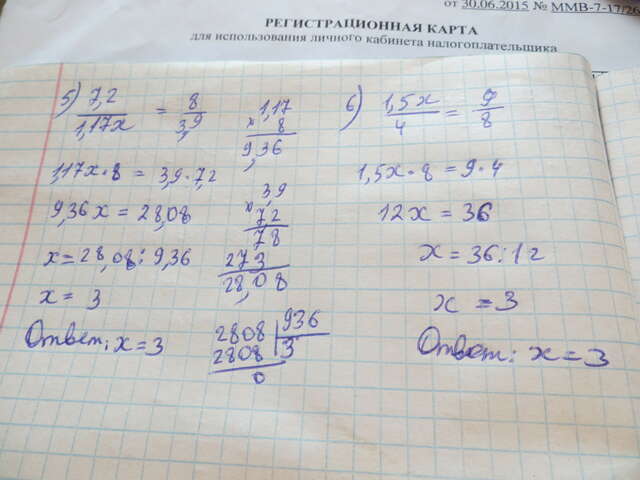 от 30.06.2015 № ММВ-7-17/26
РЕГИСТРАЦИОННАЯ КАРТА
для использования личного кабинета налогоплательщика
5) 7,2 / 1,17x = 8 / 3,9
1,17
× 8
9,36
1,17x · 8 = 3,9 · 7,2
9,36x = 28,08
x = 28,08 : 9,36
x = 3
Ответ: x = 3
3,9
× 7,2
78
273
28,08
2808 | 936
2808 | 3
0
6) 1,5x / 4 = 9 / 8
1,5x · 8 = 9 · 4
12x = 36
x = 36 : 12
x = 3
Ответ: x = 3